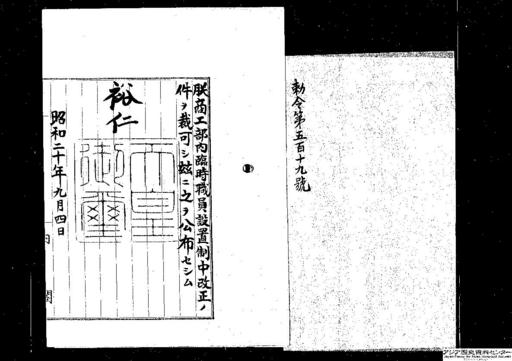 勅令第五百十九號
朕商工部內臨時職員設置制中改正ノ
件ヲ裁可シ茲ニ之ヲ公布セシム
裕仁
天皇
御璽
昭和二十年九月四日
內閣
アジア歴史資料センター